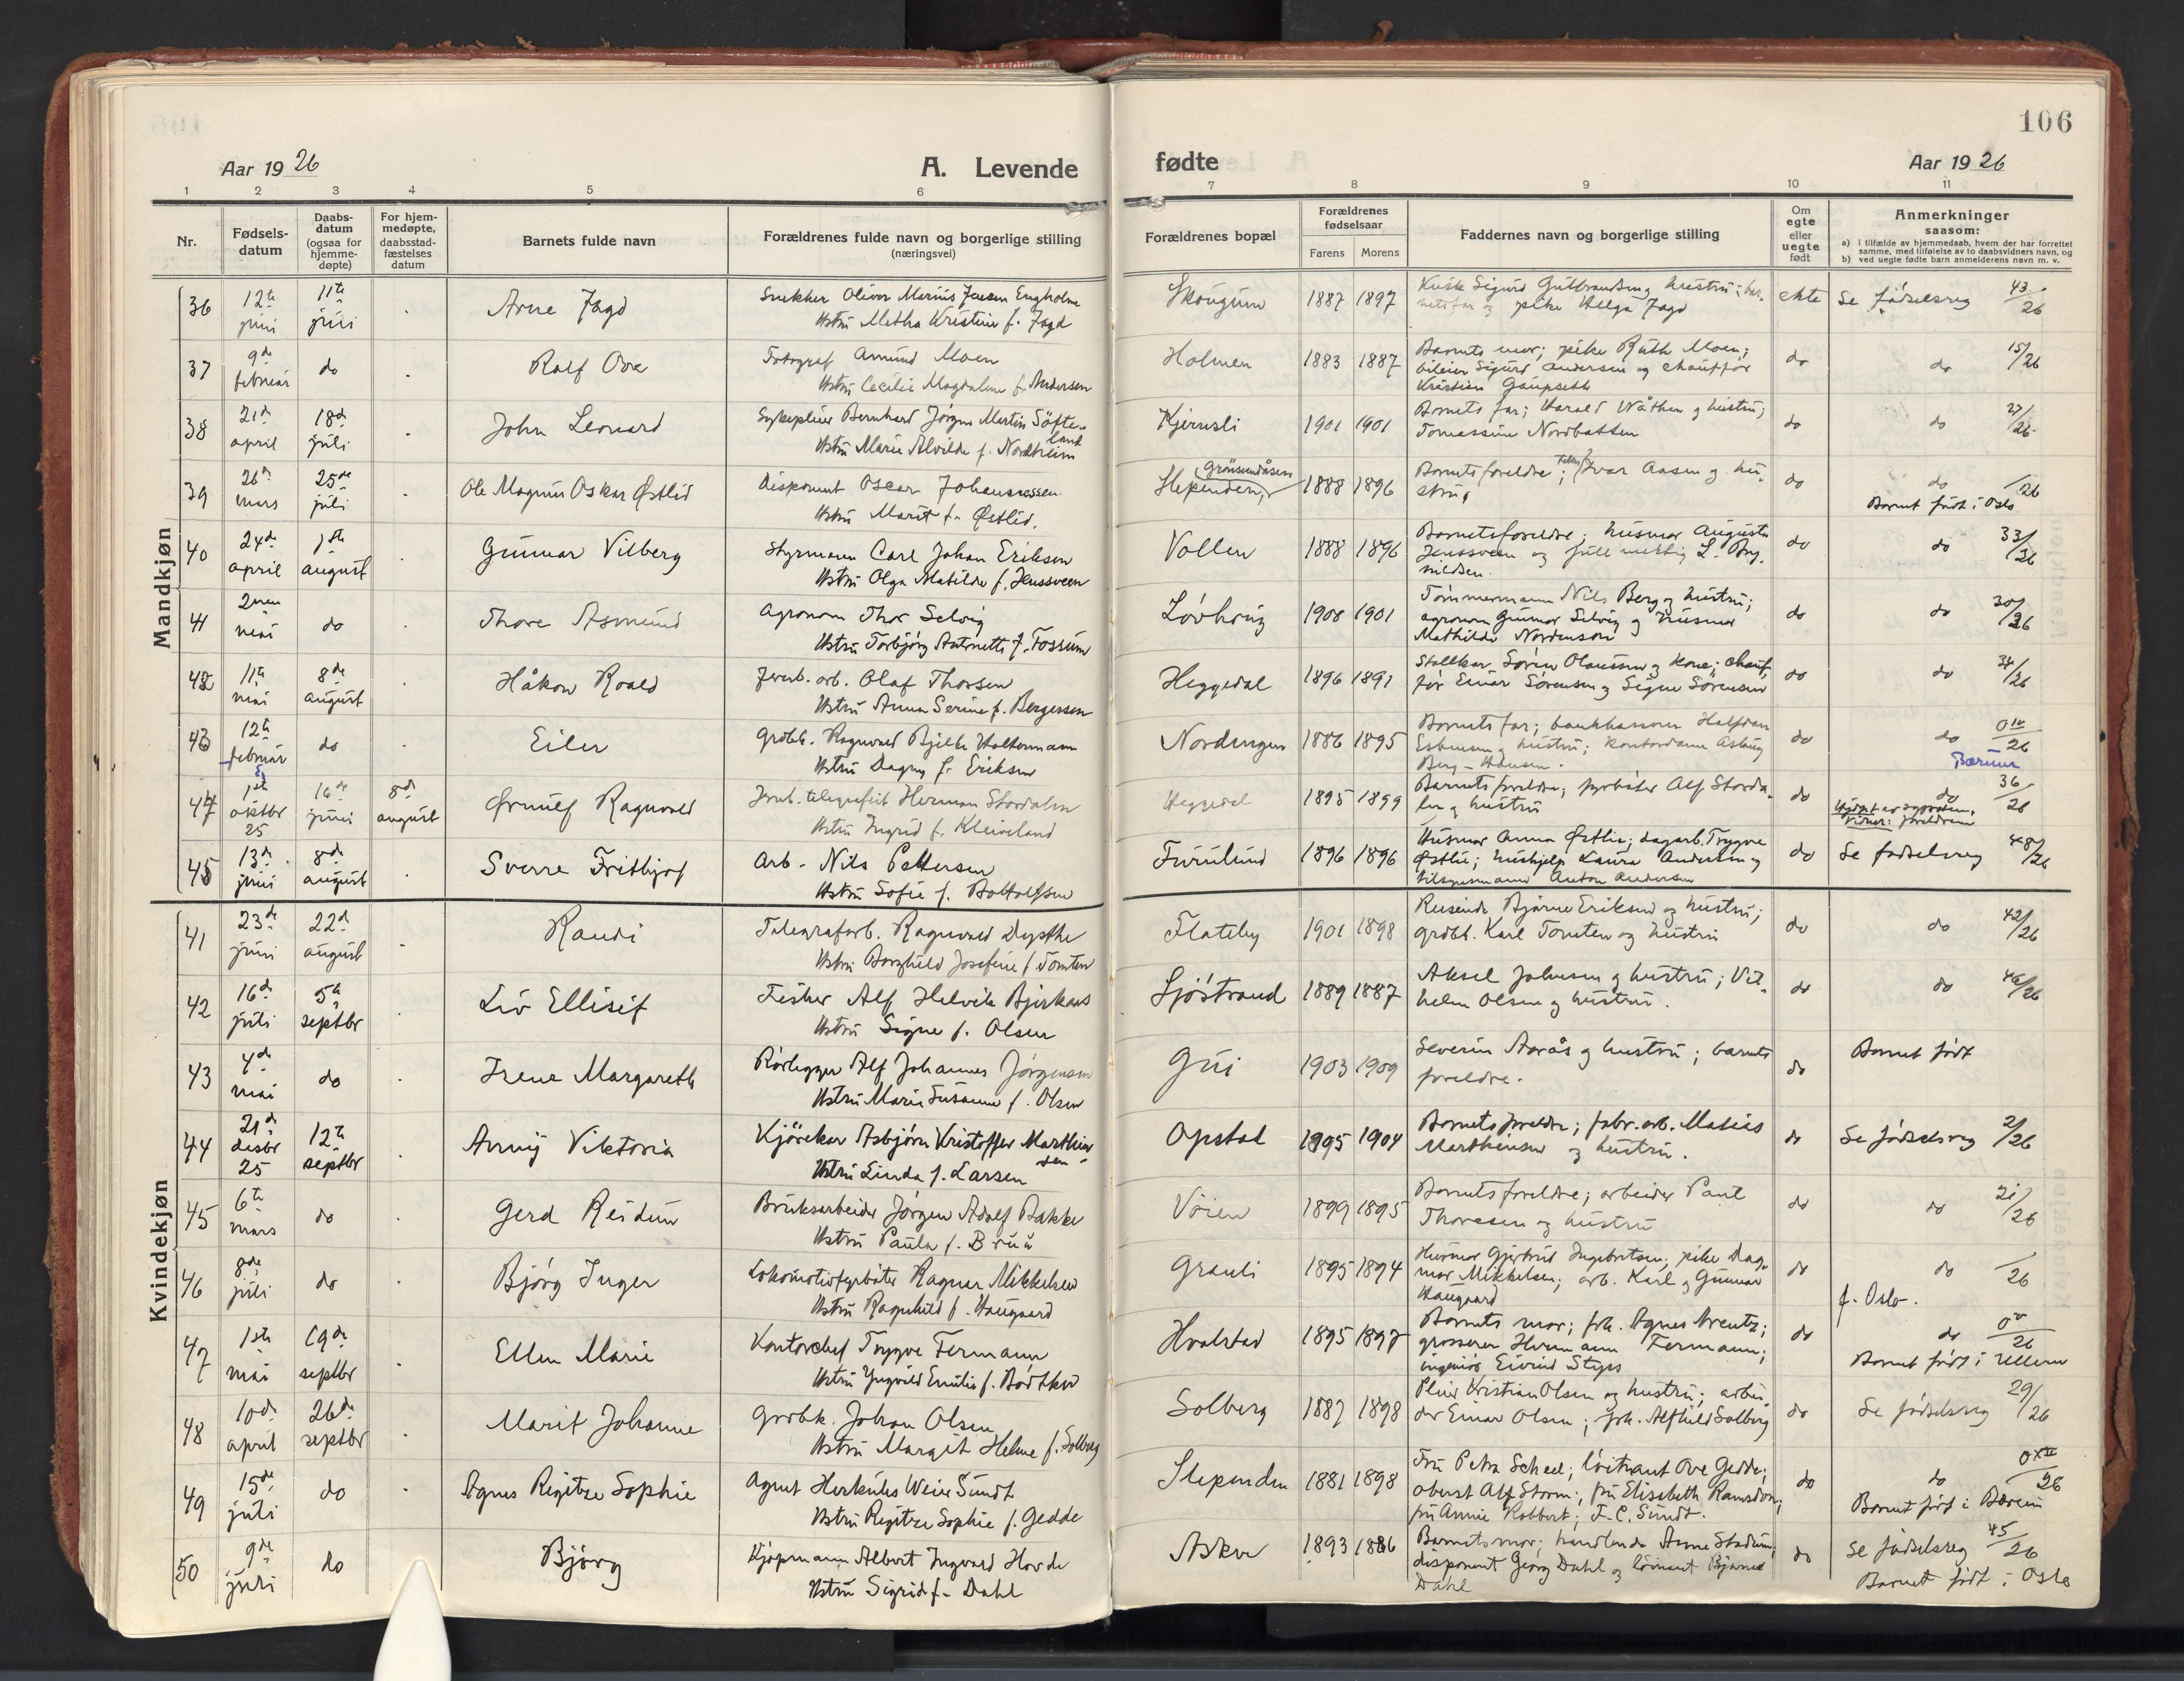 106
Aar 1926
A. Levende
fødte
Aar 1926
1 2 3 4 5 6 7 8 9 10 11
Nr.
Fødsels-
datum
Daabs-
datum
(ogsaa for
hjemme-
døpte)
For hjem-
medøpte,
daabsstad-
fæstelses
datum
Barnets fulde navn
Forældrenes fulde navn og borgerlige stilling
(næringsvei)
Forældrenes bopæl
Forældrenes
fødselsaar
Farens Morens
Faddernes navn og borgerlige stilling
Om
egte
eller
uegte
født
Anmerkninger
saasom:
a) i tilfælde av hjemmedaab, hvem der har forrettet
samme, med tilføielse av to daabsvidners navn, og
b) ved uegte fødte barn anmelderens navn m. v.
Mandkjøn
36 12te juni 11te juli Arne Jagd
Snekker Oliver Marius Jensen Engholm
Hstru Metha Kristine f. Jagd
Skougum 1887 1897
Kusk Sigurd Gulbrandsen g hustru; bar-
netsfar og pike Helga Jagd
ekte Se fødselsreg 43/26
37 9de februar do Rolf Ove
Fotograf Amund Moen
Hstru Cecilie Magdalene f. Andersen
Holmen 1883 1887
Barnets mor; pike Ruth Moen;
bileier Sigurd Andersen og chauffør
Kristian Gaupseth
do do 15/26
38 21de april 18de juli John Leonard
Sykepleier Bernhard Jørgen Martin Søfte-
land
Hstru Marie Alvilde f. Nordheim
Kjernsli 1901 1901
Barnets far; Harald Wåthen g hustru;
Tomassine Nordbakken
do do 27/26
39 26de mars 25de juli Ole Magnus Oskar Østlid
Disponent Oscar Johannessen
Hstru Marit f. Østlid.
Grønsundåsen
Slependen, 1888 1896
Barnets foreldre; Ivar Aasen og hu-
stru,
do do /26
Barnet født i Oslo
40 24de april 1ste august Gunnar Vilberg
Styrmann Carl Johan Eriksen
Hstru Olga Matilde f. Henssveen
Vollen 1888 1896
Barnets foreldre; husmor Augusta
Henssveen og fullmektig L. Bry-
nildsen.
do do 33/26
41 2nen mai do Thore Asmund
Agronom Thor Selvig
Hstru Torbjørg Antonette f. Fossum
Løvhaug 1908 1901
Tømmermann Nils Berg og hustru;
agronom Gunnar Selvig og husmor
Mathilde Nordenson
do do 30/26
42 11te mai 8de august Håkon Roald
Jernb. arb. Olaf Thorsen
Hstru Anna Serine f. Bergersen
Heggedal 1896 1891
Stallkar Søren Olaussen g kone; chauf-
før Einar Sørensen g Signe Sørensen
do do 34/26
43 12te februar do Eiler
Grdbk. Ragnvald Bjelke Holtermann
Hstru Dagny f. Eriksen
Nordengen 1886 1895
Barnets far; bankkasserer Halfdan
Esbensen g hustru; kontordame Asbiøg
Berg-Hansen.
do do 0IV/26
Bærum
44 1ste oktbr 25 16de juni 8de august Ørnulf Ragnvald
Jernb. telegrafist Herman Stordalen
Hstru Ingrid f. Kleiveland
Heggedal 1895 1899
Barnets foreldre; fyrbøter Alf Storda-
len g hustru
do do 36/26
Vidner: foreldrene
45 13de juni 8de august Sverre Fritbjof
Arb. Nils Pettersen
Hstru Sofie f. Bottolfsen
Furulund 1896 1896
Husmor Anna Østlie; dagarb. Trygve
Østlie; hushjelp Laura Andersen g
tilsynsmann Anton Andersen
do Se fødselsreg 48/26
Kvindekjøn
41 23de juni 22de august Randi
Telegrafarb. Ragnvald Dysthe
Hstru Borghild Josefine f. Tomten
Flateby 1901 1898
Reisende Bjarne Eriksen og hustru;
grdbk. Karl Tomten og hustru
do do 42/26
42 16de juli 5te septbr Liv Ellisif
Fisker Alf Helvik Bjerkaas
Hstru Signe f. Olsen
Sjøstrand 1889 1887
Aksel Johnsen g hustru; Vil-
helm Olsen g hustru.
do do 46/26
43 4de mai do Irene Margareth
Rørlegger Alf Johannes Jørgensen
Hstru Marie Susanne f. Olsen
Gui 1903 1909
Severin Aarås g hustru; barnets
foreldre.
do Barnet født
44 21de desbr 25 12te septbr Annij Viktoria
Kjørekar Asbjørn Kristoffer Marthin-
sen
Hstru Linda f. Larsen
Opstad 1895 1904
Barnets foreldre; fabr. arb. Matias
Marthinsen og hustru.
do Se fødselsreg 2/26
45 6te mars do Gerd Reidun
Bruksarbeider Jørgen Adolf Bakke
Hstru Paula f. Bruu
Vøien 1899 1895
Barnets foreldre; arbeider Paul
Thoresen og hustru
do do 21/26
46 8de juli do Bjørg Inger
Lokomotivfyrbøter Ragnar Mikkelsen
Hstru Ragnhild f. Haugaard
Grauli 1895 1894
Husmor Gjertrud Ingebretsen; pike Dag-
mar Mikkelsen; arb. Karl g Gunnar
Haugaard
do do /26
f. Oslo.
47 1ste mai 19de septbr Ellen Marie
Kontorchef Trygve Fermann
Hstru Yngvild Emilie f. Bødtker
Hvalstad 1895 1897
Barnets mor; frk. Agnes Arentz;
grosserer Hermann Fermann;
ingeniør Eivind Styps
do do 0V/26
Barnet født i Ullern
48 10de april 26de septbr Marit Johanne
Grdbk. Johan Olsen
Hstru Margit Helene f. Solberg
Solberg 1887 1898
Pleier Kristian Olsen og hustru; arbei-
der Einar Olsen; frk. Alfhild Solberg
do Se fødselsreg 29/26
49 15de juli do Agnes Regitze Sophie
Agent Herkules Weier Sundt
Hstru Regitze Sophie f. Gedde
Slependen 1881 1898
Fru Petra Scheel; løitnant Ove Gedde;
oberst Alf Storm; fru Elisabeth Ramsdon;
fru Annie Robbert; F. C. Sundt.
do do 0XII/26
Barnet født i Bærum
50 9de juni do Bjørg
Kjøpmann Albert Ingvard Hovde
Hstru Sigrid f. Dahl
Asker 1893 1886
Barnets mor; handlende Anne Stadum;
disponent Georg Dahl og løitnant Bjarne
Dahl
do Se fødselsreg 45/26
Barnet født i Oslo